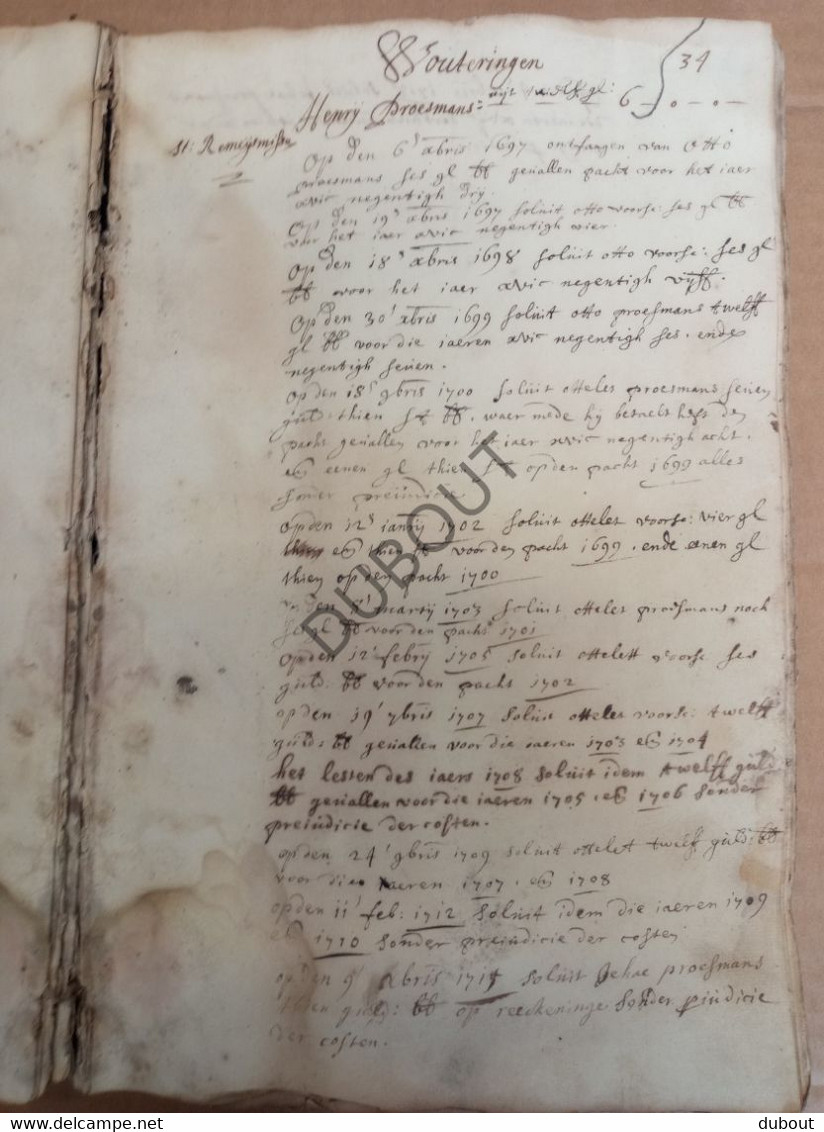 Wouteringen
34
Henrij Proesmans:
6 - o - o -
St: Remeijsmisse
Op den 6' xbris 1697 ontfangen van Otto
proesmans ses gl bb geuallen pacht voor het iaer
xvic negentigh drij
Op den 19' xbris 1697 soluit otto voors: ses gl bb
voor het iaer xvic negentigh vier.
Op den 18' xbris 1698 soluit otto voorse: ses gl
bb voor het iaer xvic negentigh vijff.
Op den 30' xbris 1699 soluit otto proesmans twelff
gl bb voor die iaeren xvic negentigh ses. ende
negentigh seuen.
op den 18' 9bris 1700 soluit otteles proesmans seuen
guld: thien st bb. waer mede hij betaelt heft den
pacht geuallen voor het iaer xvic negentigh acht.
en eenen gl thien st op den pacht 1699 alles
sonder preiudicie
op den 12' ianrij 1702 soluit otteles voorse: vier gl
en thien st voor den pacht 1699. ende eenen gl
thien op den pacht 1700
den 8' martij 1703 soluit otteles proesmans noch
ses gl bb voor den pacht 1701
op den 12' febrij 1705 soluit ottelett voorse ses
guld. bb voor den pacht 1702
op den 19' 7bris 1707 soluit otteles voorse: twelff
guld: bb geuallen voor die iaeren 1703 en 1704
het lesten des iaers 1708 soluit idem twelff guld
bb geuallen voor die iaeren 1705. en 1706 sonder
preiudicie der costen.
op den 24' 9bris 1709 soluit ottelet twelff guld: bb
voor die iaeren 1707. en 1708
op den 11' feb: 1712 soluit idem die iaeren 1709
en 1710 sonder preiudicie der costen
op den 9' xbris 1715 soluit Jehae proesmans
thien guld: bb op reeckeninge sonder priudicie
der costen.
DUBOUT
delcampe.net
dubout